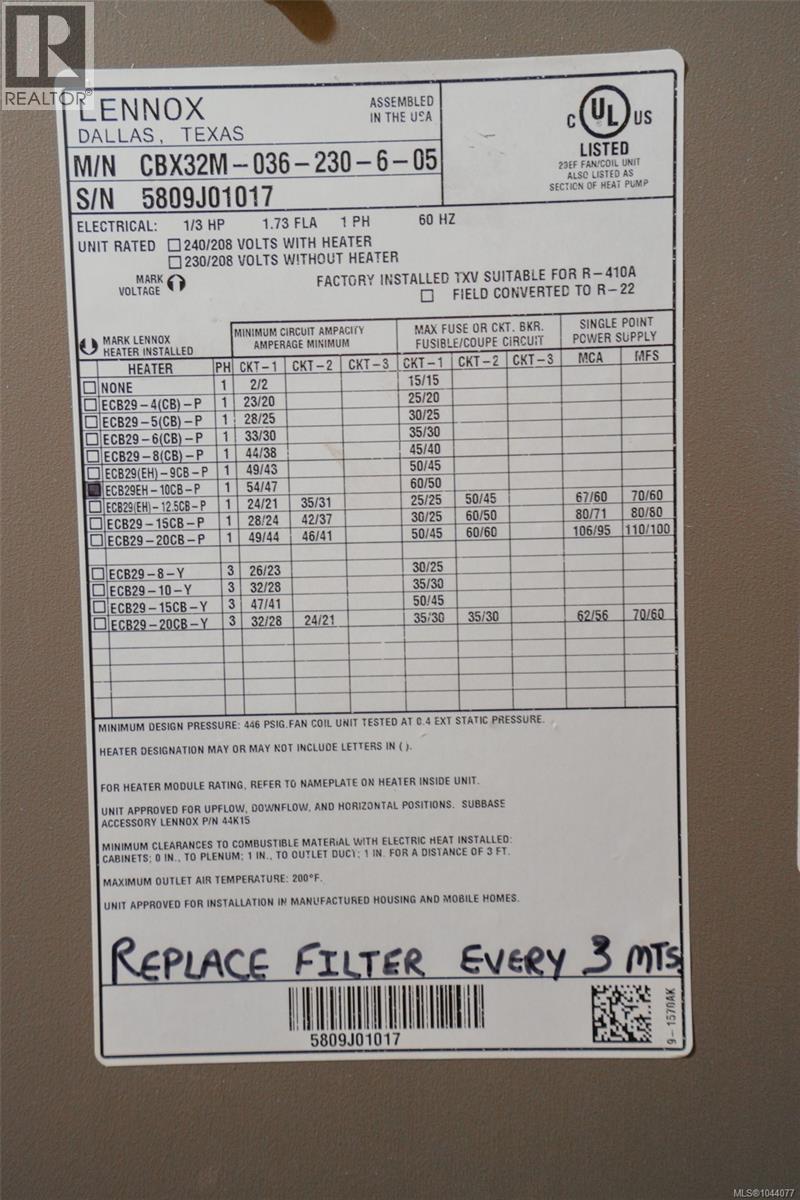 REALTOR®
LENNOX
DALLAS, TEXAS
ASSEMBLED
IN THE USA
M/N CBX32M-036-230-6-05
S/N 5809J01017
C UL US
LISTED
23EF FAN/COIL UNIT
ALSO LISTED AS
SECTION OF HEAT PUMP
ELECTRICAL: 1/3 HP 1.73 FLA 1 PH 60 HZ
UNIT RATED 240/208 VOLTS WITH HEATER
230/208 VOLTS WITHOUT HEATER
MARK
VOLTAGE
FACTORY INSTALLED TXV SUITABLE FOR R-410A
FIELD CONVERTED TO R-22
MARK LENNOX
HEATER INSTALLED
MINIMUM CIRCUIT AMPACITY
AMPERAGE MINIMUM
MAX FUSE OR CKT. BKR.
FUSIBLE/COUPE CIRCUIT
SINGLE POINT
POWER SUPPLY
HEATER PH CKT-1 CKT-2 CKT-3 CKT-1 CKT-2 CKT-3 MCA MFS
NONE 1 2/2 15/15
ECB29-4(CB)-P 1 23/20 25/20
ECB29-5(CB)-P 1 28/25 30/25
ECB29-6(CB)-P 1 33/30 35/30
ECB29-8(CB)-P 1 44/38 45/40
ECB29(EH)-9CB-P 1 49/43 50/45
ECB29EH-10CB-P 1 54/47 60/50
ECB29(EH)-12.5CB-P 1 24/21 35/31 25/25 50/45 67/60 70/60
ECB29-15CB-P 1 28/24 42/37 30/25 60/50 80/71 80/80
ECB29-20CB-P 1 49/44 46/41 50/45 60/60 106/95 110/100
ECB29-8-Y 3 26/23 30/25
ECB29-10-Y 3 32/28 35/30
ECB29-15CB-Y 3 47/41 50/45
ECB29-20CB-Y 3 32/28 24/21 35/30 35/30 62/56 70/60
MINIMUM DESIGN PRESSURE: 446 PSIG. FAN COIL UNIT TESTED AT 0.4 EXT STATIC PRESSURE.
HEATER DESIGNATION MAY OR MAY NOT INCLUDE LETTERS IN ( ).
FOR HEATER MODULE RATING, REFER TO NAMEPLATE ON HEATER INSIDE UNIT.
UNIT APPROVED FOR UPFLOW, DOWNFLOW, AND HORIZONTAL POSITIONS. SUBBASE
ACCESSORY LENNOX P/N 44K15
MINIMUM CLEARANCES TO COMBUSTIBLE MATERIAL WITH ELECTRIC HEAT INSTALLED:
CABINETS; 0 IN., TO PLENUM; 1 IN., TO OUTLET DUCT; 1 IN. FOR A DISTANCE OF 3 FT.
MAXIMUM OUTLET AIR TEMPERATURE: 200°F.
UNIT APPROVED FOR INSTALLATION IN MANUFACTURED HOUSING AND MOBILE HOMES.
REPLACE FILTER EVERY 3 MTS.
5809J01017
9-1570AK
MLS®1044077